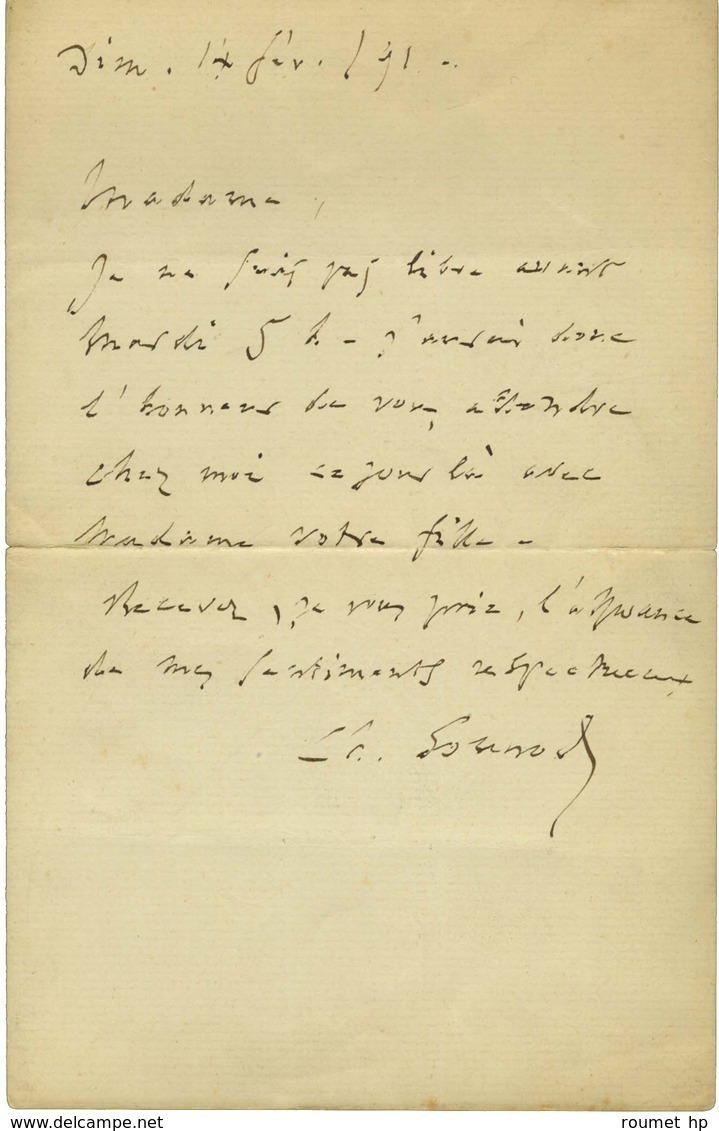 Dim. 1X fév. /91 -.
Madame,
Je ne suis pas libre avant
Mardi 5 h. - j'aurai donc
l'honneur de vous attendre
chez moi ce jour là avec
Madame votre fille -
Recevez, je vous prie, l'assurance
de mes sentiments respectueux
Ch. Gounod
www.delcampe.net
roumet hp